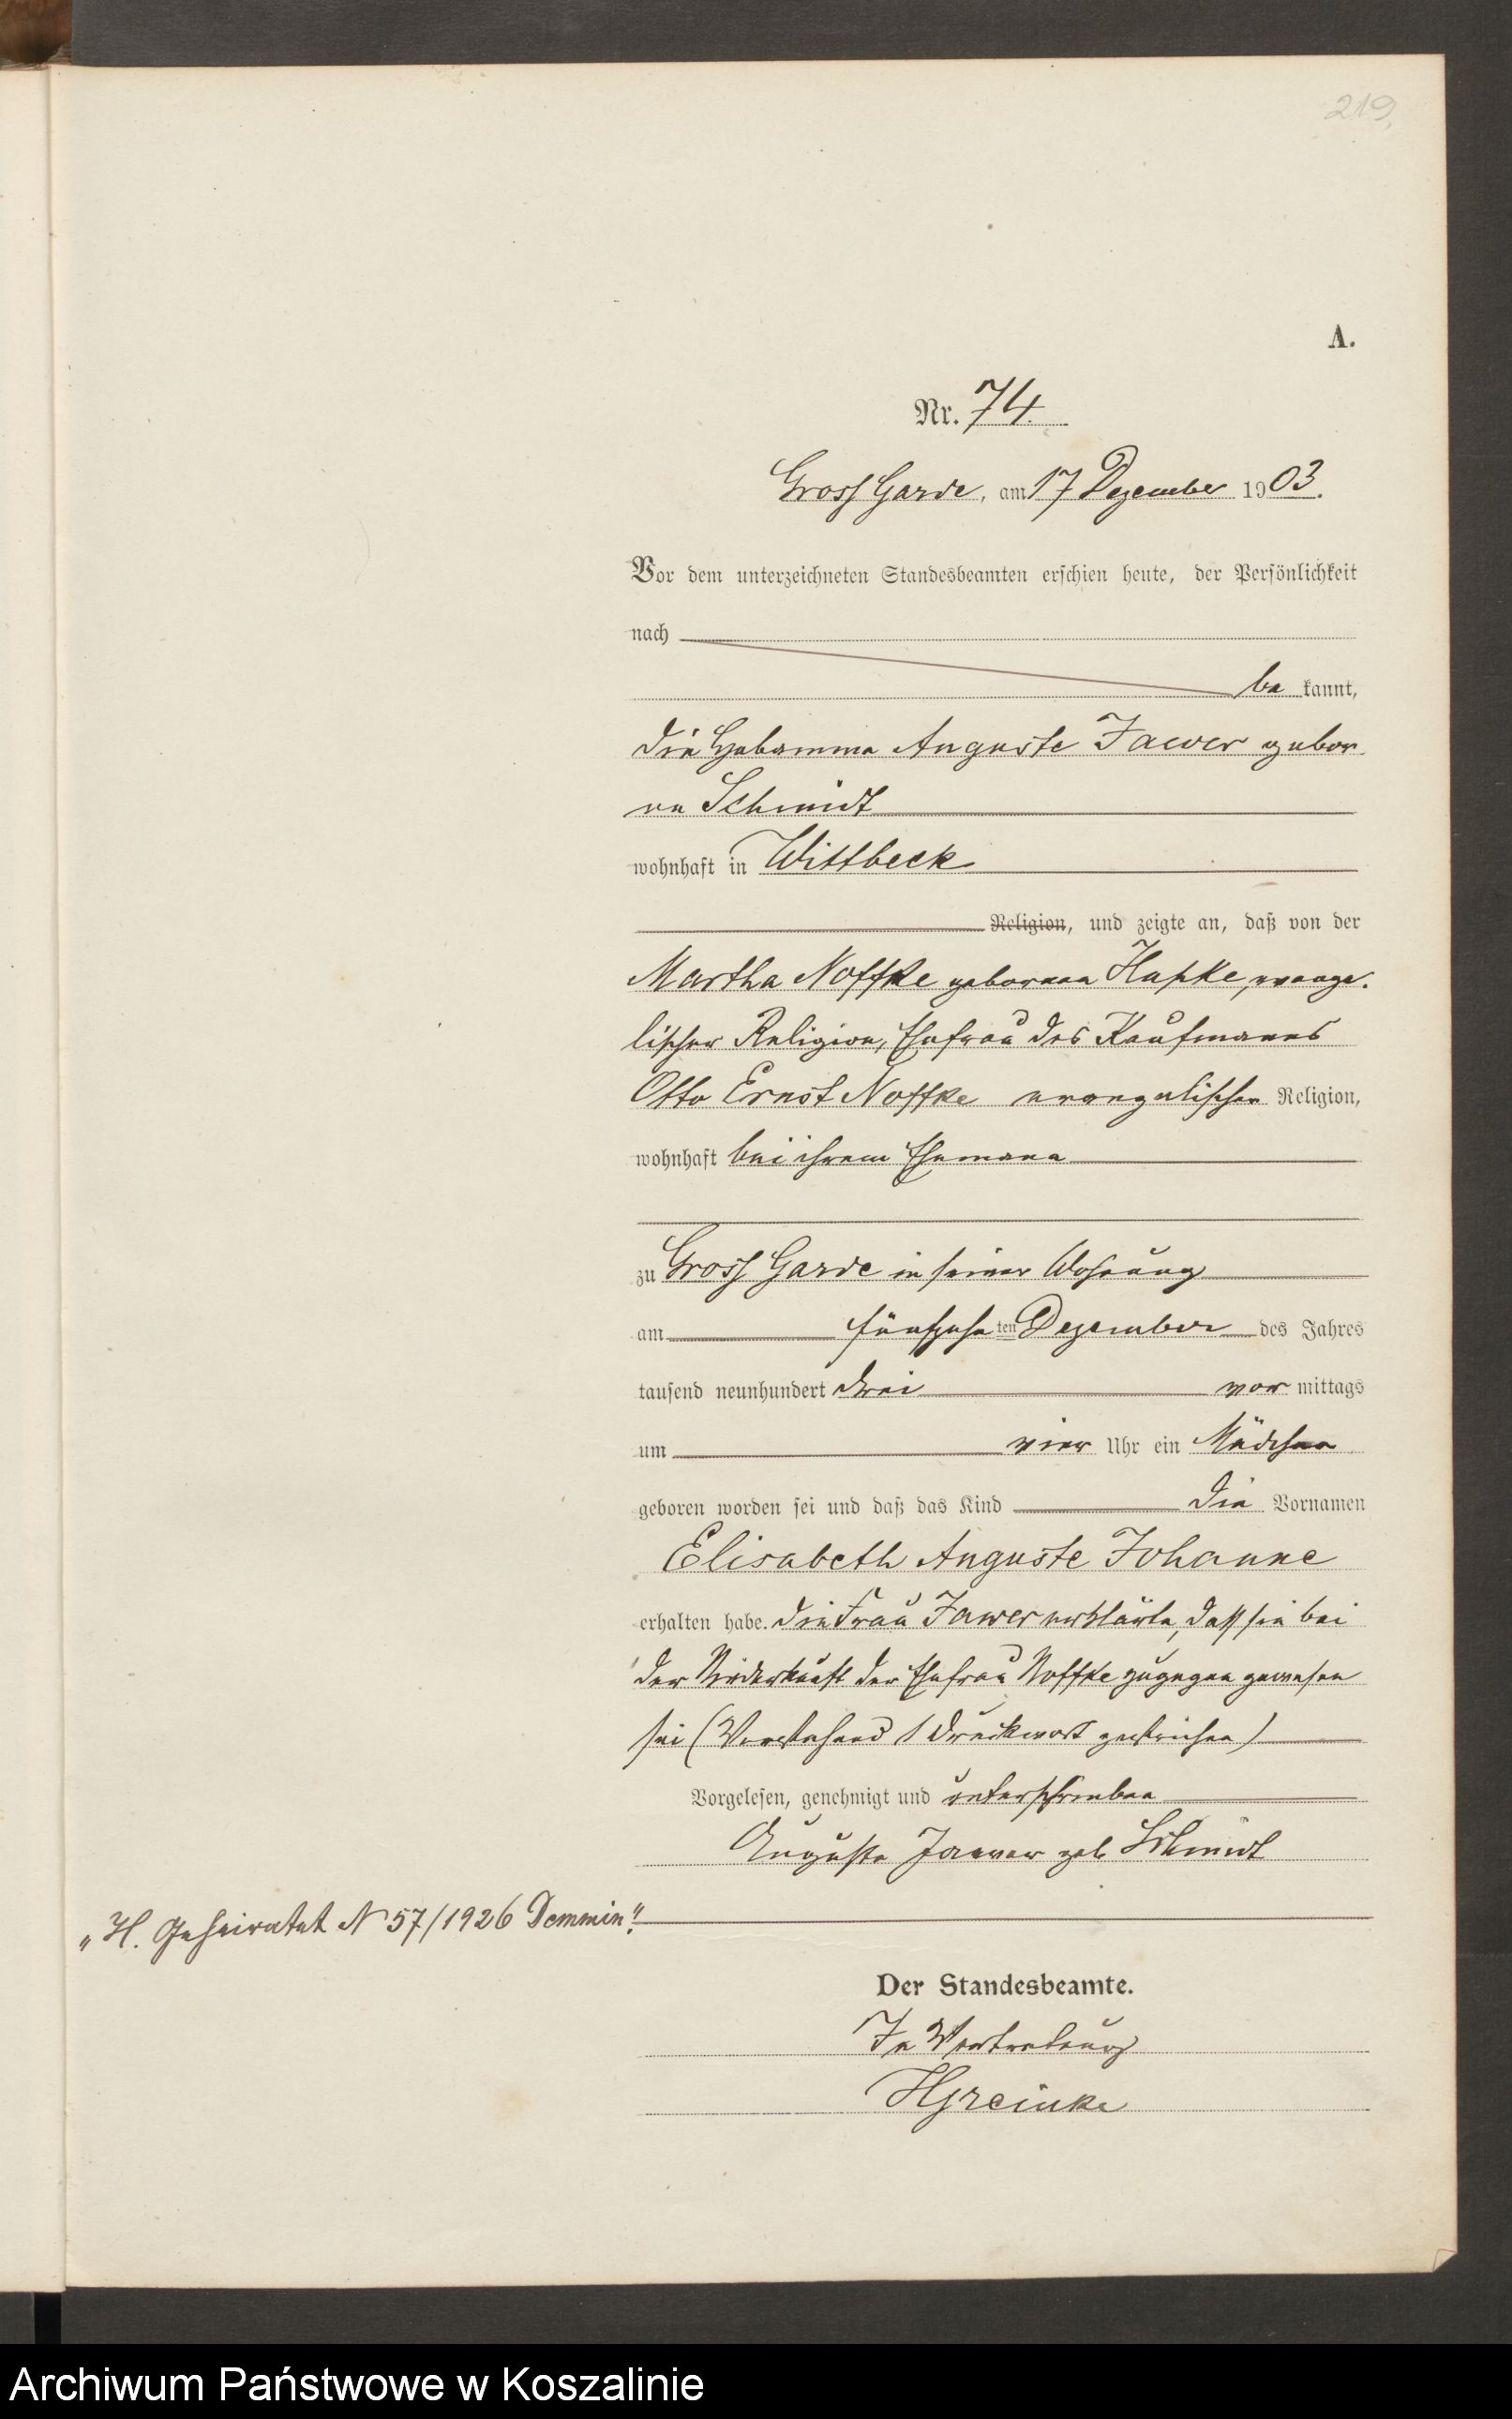 219.
A.
Nr. 74.
Gross Garde, am 17 Dezember 1903.
Vor dem unterzeichneten Standesbeamten erschien heute, der Persönlichkeit
nach
be kannt,
die Hebamme Auguste Jawer gebor
ne Schmidt
wohnhaft in Wittbeck
Religion, und zeigte an, daß von der
Martha Noffke geborenen Hapke, evange.
lischer Religion, Ehefrau des Kaufmanns
Otto Ernst Noffke evangelischer Religion,
wohnhaft bei ihrem Ehemann
zu Gross Garde in seiner Wohnung
am fünfzehn ten Dezember des Jahres
tausend neunhundert drei vor mittags
um vier Uhr ein Mädchen
geboren worden sei und daß das Kind die Vornamen
Elisabeth Auguste Johanne
erhalten habe. die Frau Jawer erklärte, dass sie bei
der Niederkunft der Ehefrau Noffke zugegen gewesen
sei (Vorstehend 1 Druckwort gestrichen)
Vorgelesen, genehmigt und unterschrieben
Auguste Jawer geb Schmidt
„H. Geheiratet N 57/1926 Demmin“.
Der Standesbeamte.
In Vertretung
Archiwum Państwowe w Koszalinie